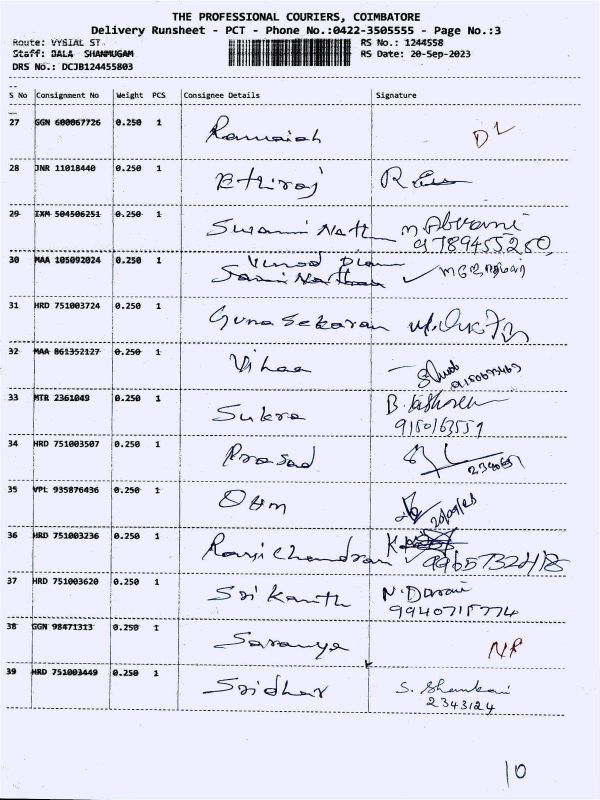 THE PROFESSIONAL COURIERS, COIMBATORE
Delivery Runsheet - PCT - Phone No.:0422-3505555 - Page No.:3
Route: VYSIAL ST RS No.: 1244558
Staff: BALA SHANMUGAM RS Date: 20-Sep-2023
DRS No.: DCJB124455803
S No Consignment No Weight PCS Consignee Details Signature
27 GGN 600067726 0.250 1 Ramaiah DL
28 JNR 11018440 0.250 1 Ethiraj
29 IXM 504506251 0.250 1 Swami Nath
9789455250
30 MAA 105092024 0.250 1 Vinod
31 HRD 751003724 0.250 1 Guna Sekaran
32 MAA 861352127 0.250 1 Vihaa
33 MTR 2361049 0.250 1 Sukra B.
9150163551
34 HRD 751003507 0.250 1 Prasad
35 VPL 935876436 0.250 1 Ohm 20/09/23
36 HRD 751003236 0.250 1 Ranji Chandran
37 HRD 751003620 0.250 1 Sri Kanth N.
9940715774
38 GGN 98471313 0.250 1 Saranya NR
39 HRD 751003449 0.250 1 Sridhar S. Shankari
2343124
10